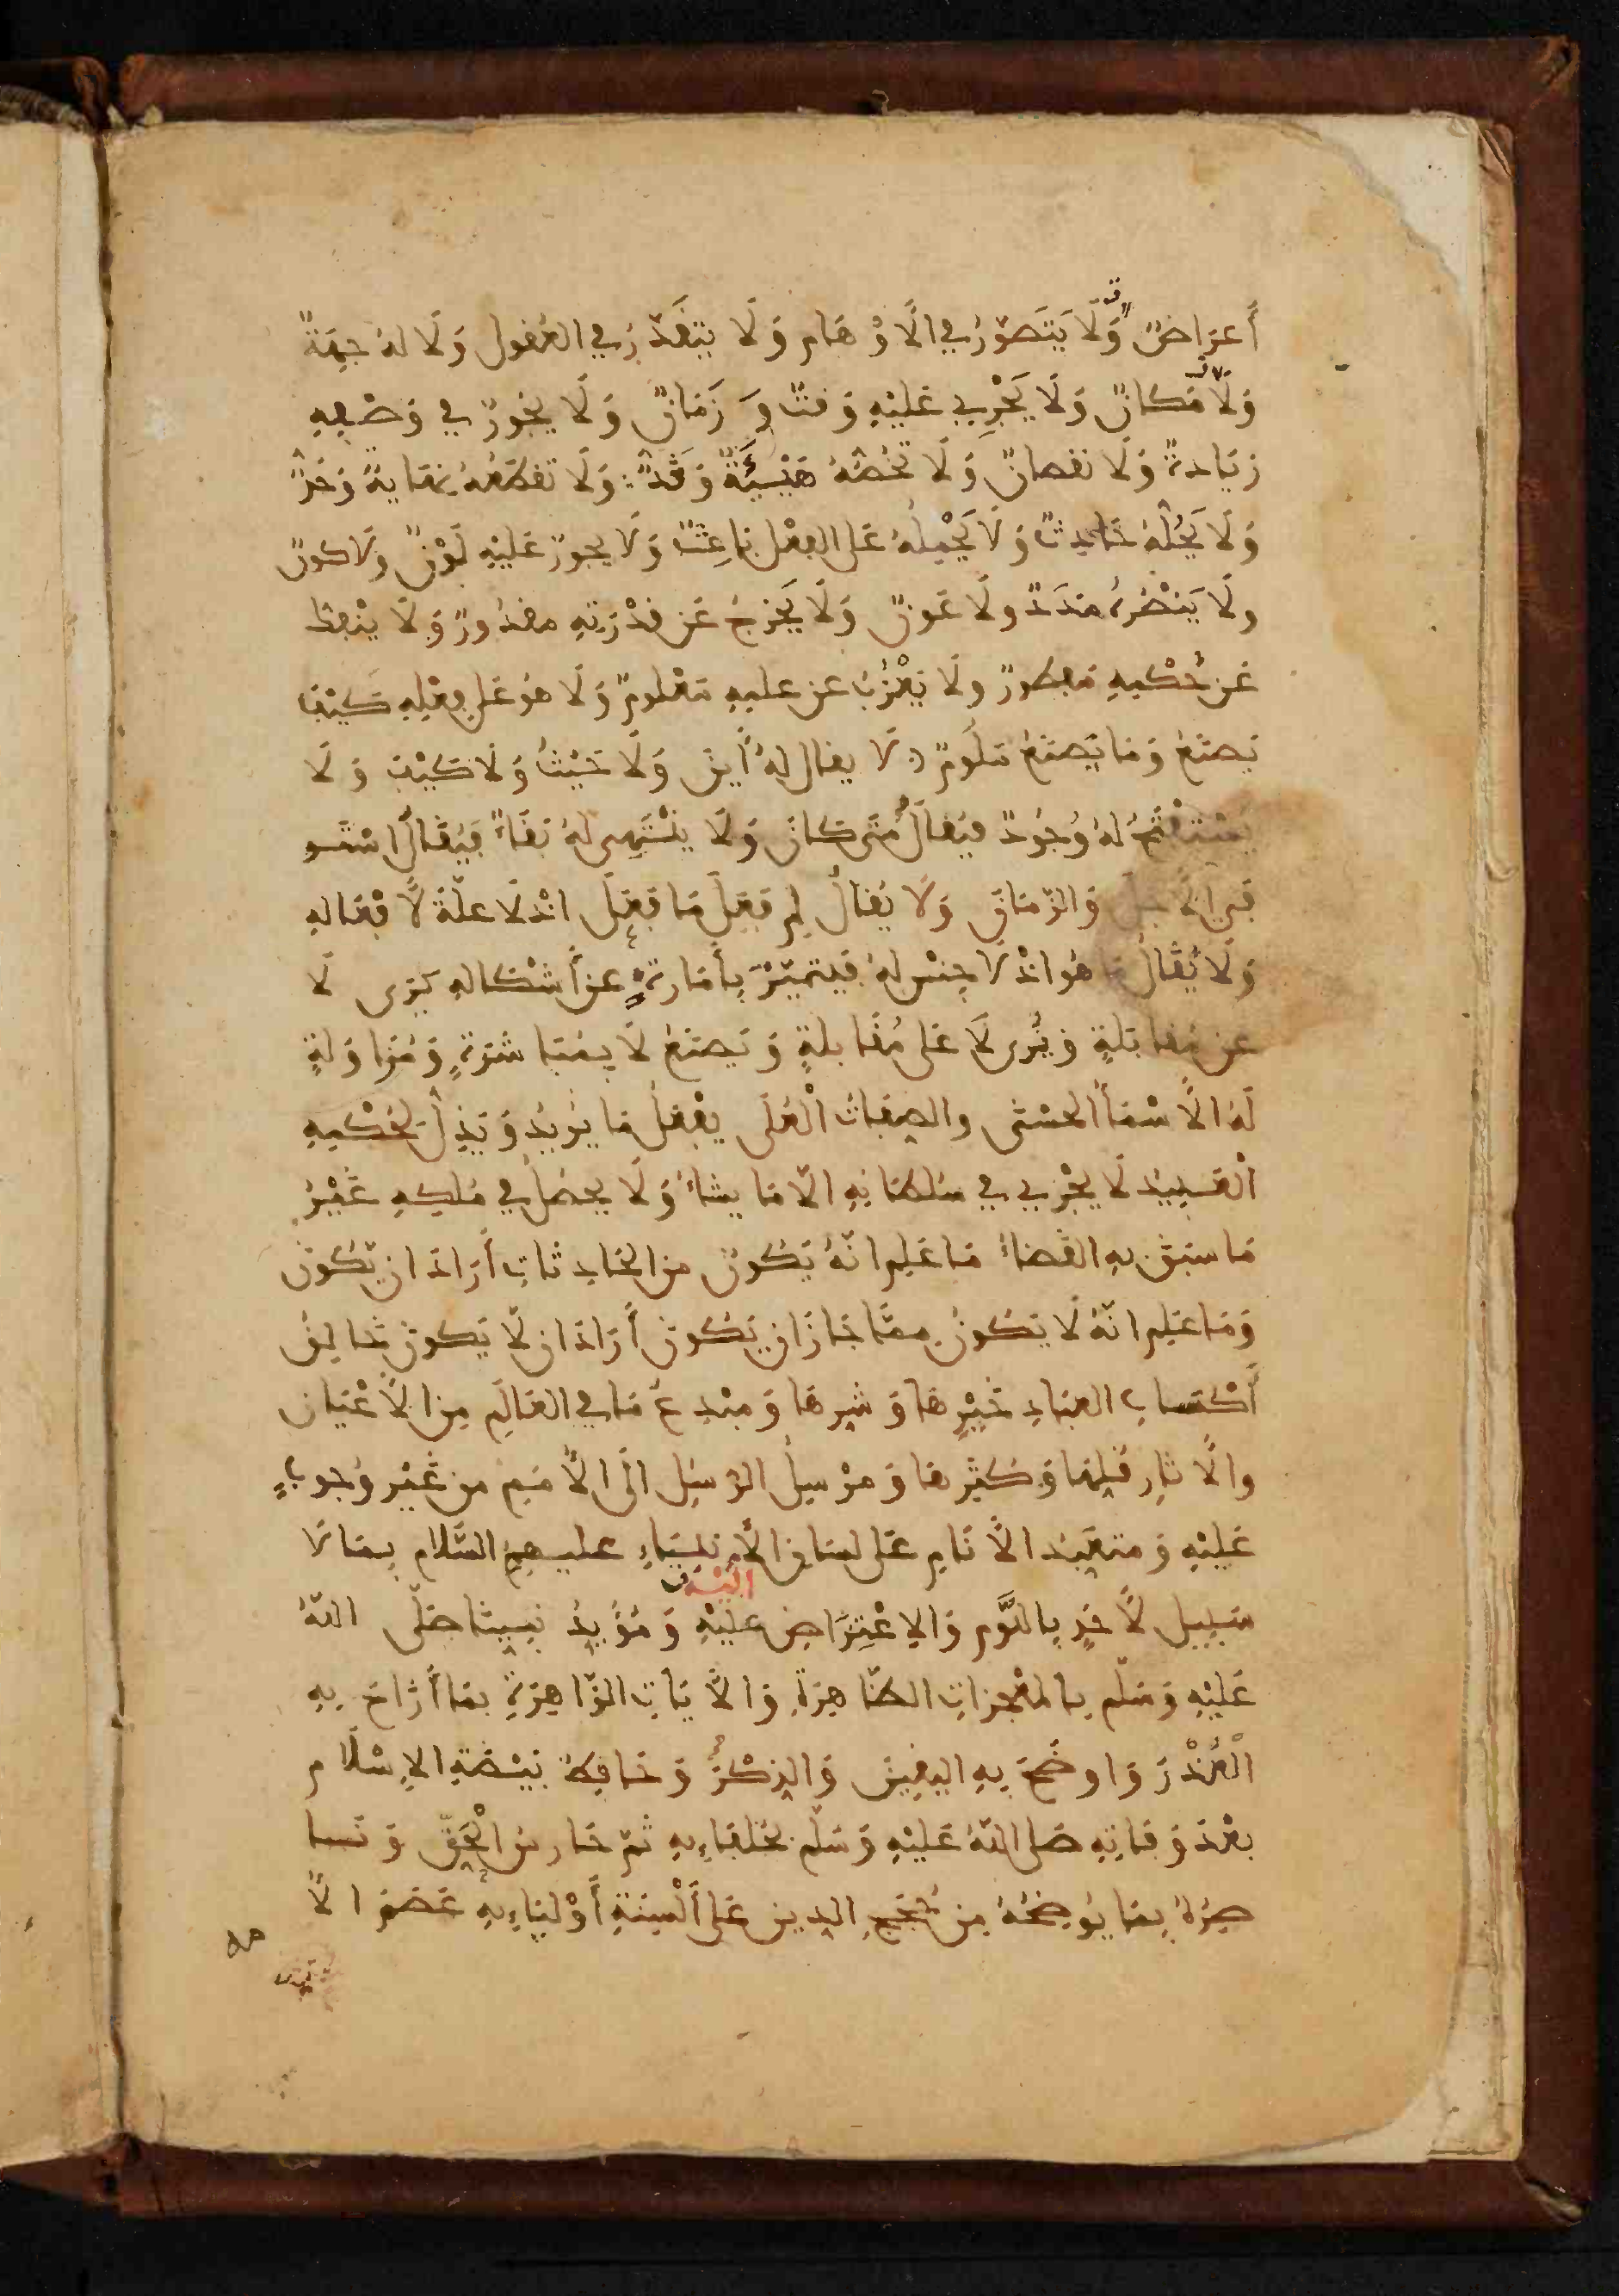 أعراض وّلا يتصوّر في الأوهام ولا يتقدّر في العقول ولا له جهة
ولا مكان ولا يجري عليه وقت و زمان ولا يجوز في وصفه
زيادة ولا نقصان ولا تخصّه هيئة وقدّ ولا تقطعه نهاية وحدّ
ولا يحلّه حادث ولا يحمله على الفعل باعث ولا يجوز عليه لون ولا كون
ولا ينصره مدد ولا عون ولا يخرج عن قدرته مقدور ولا ينفك
عن حكمه مفطور ولا يعزب عن علمه معلوم ولا هو على فعله كيف
يصنع وما يصنع ملوم لا يقال له أين ولا حيث ولا كيف ولا
يستفتح له وجود فيقال متى كان ولا ينتهي له بقاء فيقال استو
في الأجل والزّمان ولا يقال لم فعل ما فعل اذ لا علّة لأفعاله
ولا يقال ما هو اذ لا جنس له فيتميّز بأمارة عن أشكاله يرى لا
عن مقابلة ويرى لا على مقابلة ويصنع لا بمباشرة ومزاولة
له الأسماء الحسنى والصفات العلى يفعل ما يريد ويذلّ لحكمه
العبيد لا يجري في سلطانه الّا ما يشاء ولا يحصل في ملكه غير
ما سبق به القضاء ما علم انّه يكون من الحادثات أراد ان يّكون
وما علم انّه لا يكون ممّا جاز ان يكون أراد ان لّا يكون خالق
أكتساب العباد خيرها وشرها ومبدع ما في العالم من الأعيان
والأثار قلها وكثرها ومرسل الرّسل الى الأمم من غير وجوب
عليه ومتعبد الأنام على لسان الأنبياء عليهم السّلام بما لا
سبيل لأحد باللّوم والاعتراض عليه ومؤيد نبينا صلّى الله
عليه وسلّم بالمعجزات الظّاهرة والأيات الزّاهرة بما أزاح به
العذر واوضح به اليقين والذكر وحافظ بيضة الاسلام
بعد وفاته صلى الله عليه وسلّم بخلفاءه ثمّ حارس الحقّ و نا
صره بما يوضحه من حجج الدين على ألسنة أولياءه عصم الأ